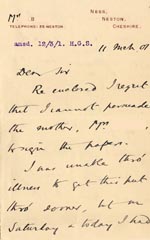 Mrs B
NESS,
NESTON,
CHESHIRE.
TELEPHONE: 28 NESTON
ansd. 12/3/1. H.G.S.
11 March 01
Dear Sir
Re enclosed I regret
that I cannot persuade
the mother, Mrs
to sign the papers.
I was unable thro'
illness to get this put
thro' sooner, but on
Saturday & today I had